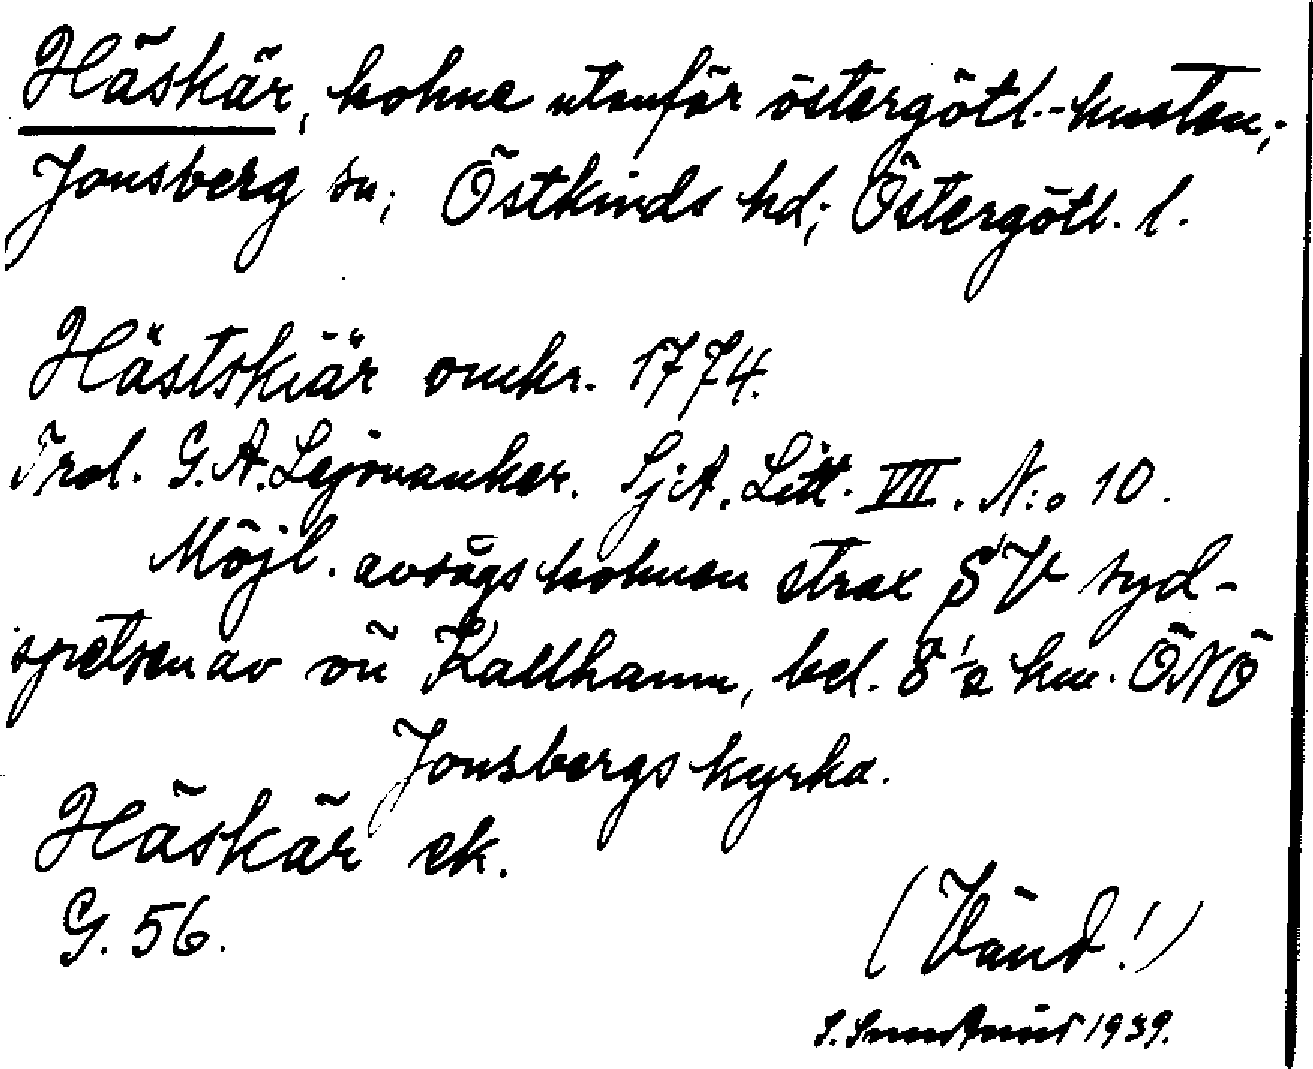 Häskär, holme utanför östergötl.-kusten;
Jonsberg sn; Östkinds hd; Östergötl. l.
Hästskiär omkr. 1774.
Trol. G. A. Lejonanker. SjA. Litt. VII. N:o 10.
Möjl. avsågs holmen strax SV syd-
spetsen av ön Kallhamn, bel. 8 ½ km. ÖNÖ
Jonsbergs kyrka.
Häskär ek.
G. 56.
(Vänd!)
1939.